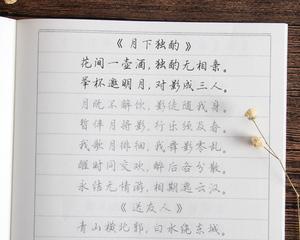 《月下独酌》
花间一壶酒，独酌无相亲。
举杯邀明月，对影成三人。
月既不解饮，影徒随我身。
暂伴月将影，行乐须及春。
我歌月徘徊，我舞影零乱。
醒时同交欢，醉后各分散。
永结无情游，相期邈云汉。
《送友人》
青山横北郭，白水绕东城。